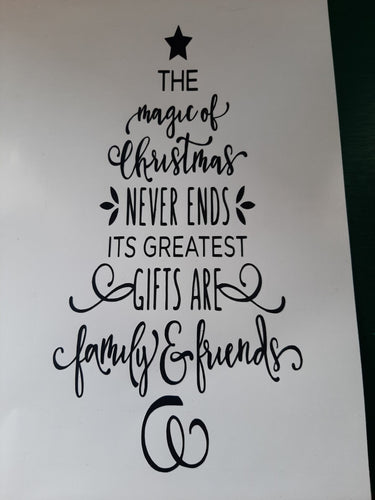 THE
magic of
Christmas
NEVER ENDS
ITS GREATEST
GIFTS ARE
family & friends